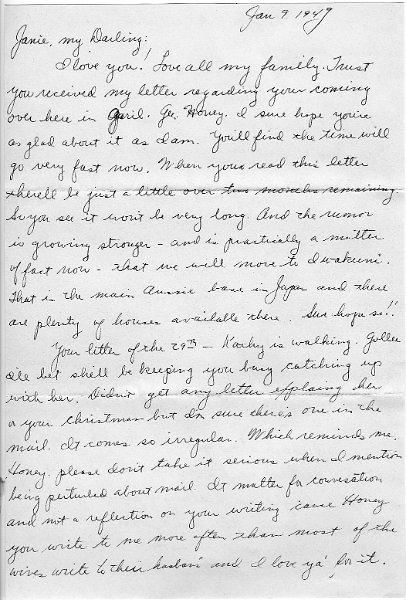 Jan 9 1947
Janie, my Darling:
I love you! Love all my family. Trust
you received my letter regarding your coming
over here in April. Gee, Honey, I sure hope you're
as glad about it as I am. You'll find the time will
go very fast now. When you read this letter
there'll be just a little over two months remaining.
So you see it won't be very long. And the rumor
is growing stronger - and is practically a matter
of fact now - that we will move to Iwakuni.
That is the main Aussie base in Japan and there
are plenty of houses available there. Sure hope so!!
Your letter of the 29th - Kathy is walking. Gollee
I'll bet she'll be keeping you busy catching up
with her. Didn't get any letter explaing her
or your Christmas but I'm sure there's one in the
mail. It comes so irregular. Which reminds me.
Honey, please don't take it serious when I mention
being perturbed about mail. It matter for conversation
and not a reflection on your writing cause Honey
you write to me more often than most of the
wives write to their husban' and I love ya' for it.